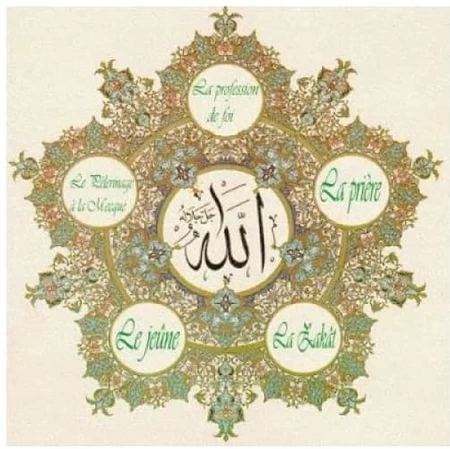 La profession
de foi
Le Pélermage
à la Mecque
La prière
الله
جل جلاله
Le jeûne
La Zakât